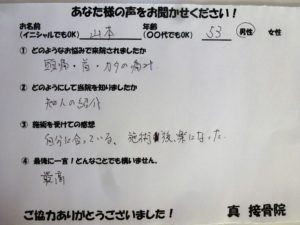 あなた様の声をお聞かせください！
お名前 年齢
(イニシャルでもOK) 山本 (〇〇代でもOK) 53 男性 女性
① どのようなお悩みで来院されましたか
頭痛・首・カタの痛み
② どのようにして当院を知りましたか
知人の紹介
③ 施術を受けての感想
自分に合っている、施術後、楽になった。
④ 最後に一言！どんなことでも構いません。
最高
ご協力ありがとうございました！ 真 接骨院